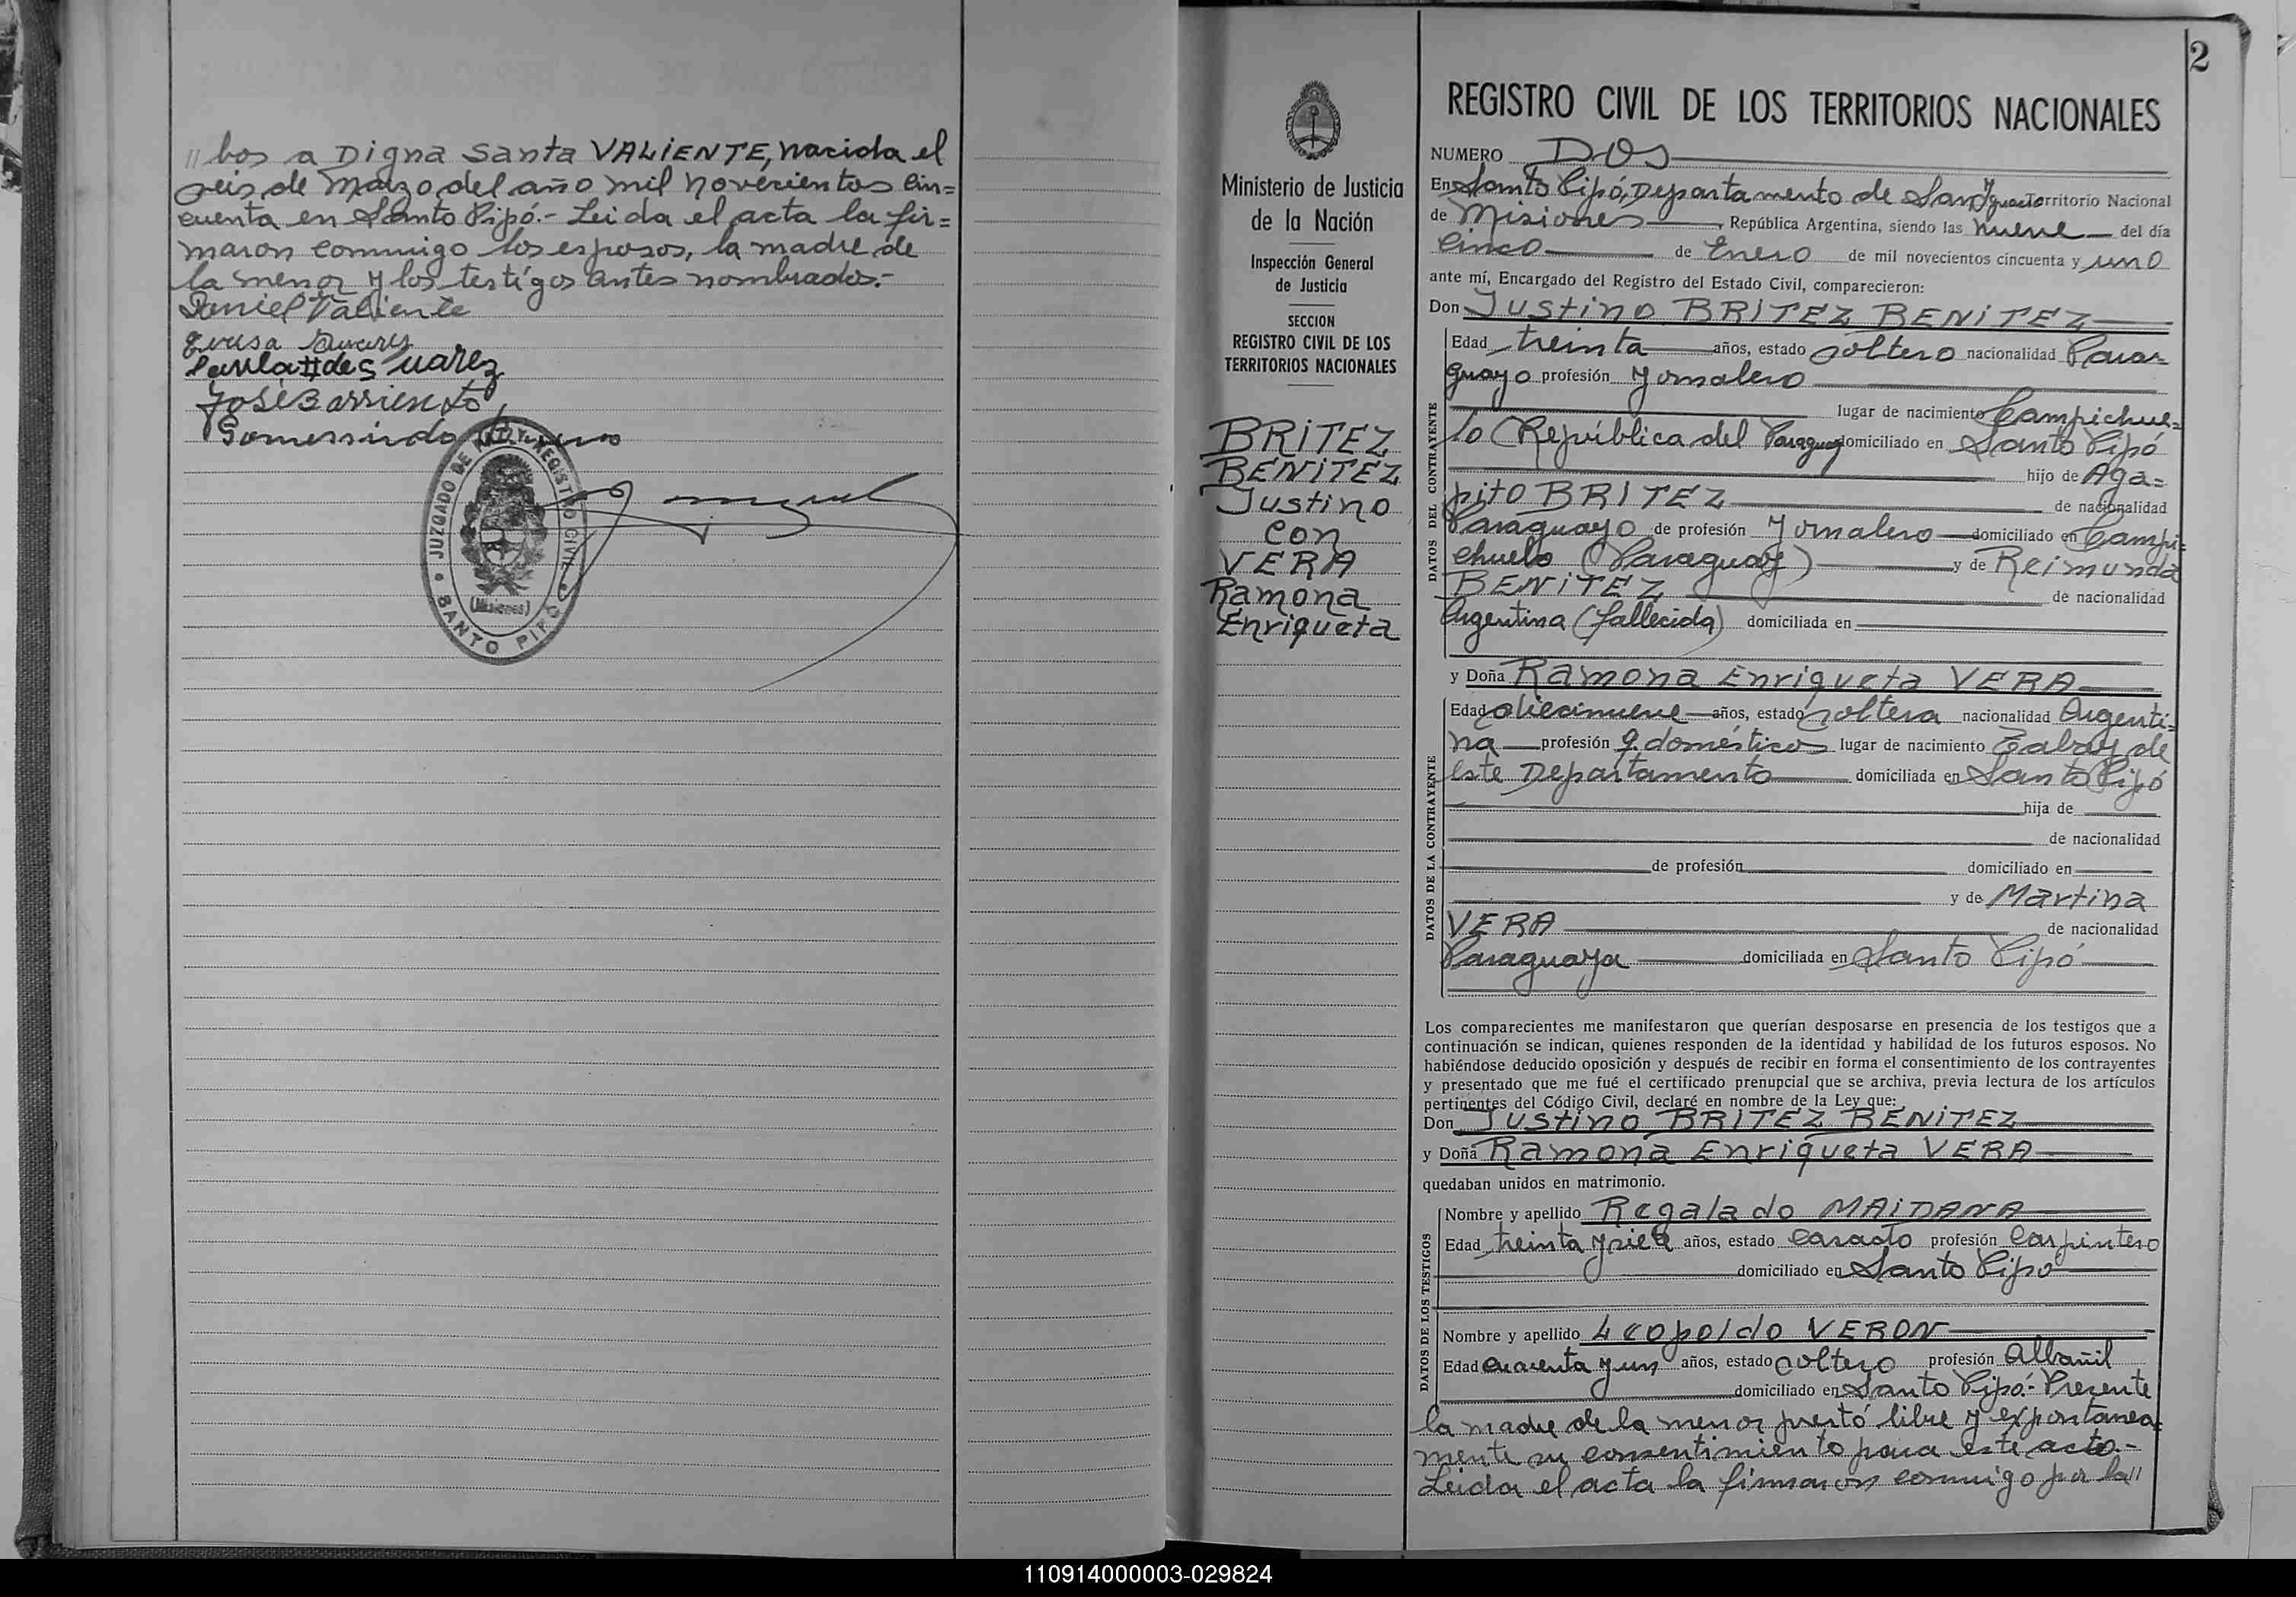 // bos a Digna Santa VALIENTE, nacida el
seis de Marzo del año mil novecientos cin=
cuenta en Santo Pipó.- Leida el acta la fir=
maron conmigo los esposos, la madre de
la menor y los testigos antes nombrados.-
Daniel Valiente
Suarez
de Suarez
José Barriento
Gomersindo
JUZGADO DE PAZ Y REGISTRO CIVIL
SANTO PIPO
(Misiones)
2
Ministerio de Justicia
de la Nación
Inspección General
de Justicia
SECCION
REGISTRO CIVIL DE LOS
TERRITORIOS NACIONALES
BRITEZ
BENITEZ
Justino
con
VERA
Ramona
Enriqueta
REGISTRO CIVIL DE LOS TERRITORIOS NACIONALES
NUMERO DOS
En Santo Pipó, Departamento de San Ygnacio Territorio Nacional
de Misiones, República Argentina, siendo las nueve del día
cinco de Enero de mil novecientos cincuenta y uno
ante mí, Encargado del Registro del Estado Civil, comparecieron:
Don Justino BRITEZ BENITEZ
DATOS DEL CONTRAYENTE
Edad treinta años, estado soltero nacionalidad Para=
guayo profesión Jornalero
lugar de nacimiento Campichue=
lo (República del Paraguay domiciliado en Santo Pipó
hijo de Aga=
pito BRITEZ de nacionalidad
Paraguayo de profesión Jornalero domiciliado en Campi=
chuelo (Paraguay) y de Reimunda
BENITEZ de nacionalidad
Argentina (fallecida) domiciliada en
y Doña Ramona Enriqueta VERA
DATOS DE LA CONTRAYENTE
Edad diecinueve años, estado soltera nacionalidad Argenti=
na profesión q. domésticos lugar de nacimiento Tabay de
este Departamento domiciliada en Santo Pipó
hija de
de nacionalidad
de profesión domiciliado en
y de Martina
VERA de nacionalidad
Paraguaya domiciliada en Santo Pipó
Los comparecientes me manifestaron que querían desposarse en presencia de los testigos que a
continuación se indican, quienes responden de la identidad y habilidad de los futuros esposos. No
habiéndose deducido oposición y después de recibir en forma el consentimiento de los contrayentes
y presentado que me fué el certificado prenupcial que se archiva, previa lectura de los artículos
pertinentes del Código Civil, declaré en nombre de la Ley que:
Don Justino BRITEZ BENITEZ
y Doña Ramona Enriqueta VERA
quedaban unidos en matrimonio.
DATOS DE LOS TESTIGOS
Nombre y apellido Regalado MAIDANA
Edad treinta y siete años, estado casado profesión Carpintero
domiciliado en Santo Pipó
Nombre y apellido Leopoldo VERON
Edad cuarenta y un años, estado soltero profesión Albañil
domiciliado en Santo Pipó.- Presente
la madre de la menor prestó libre y expontanea=
mente su consentimiento para este acto.-
Leida el acta la firmaron conmigo por la //
110914000003-029824